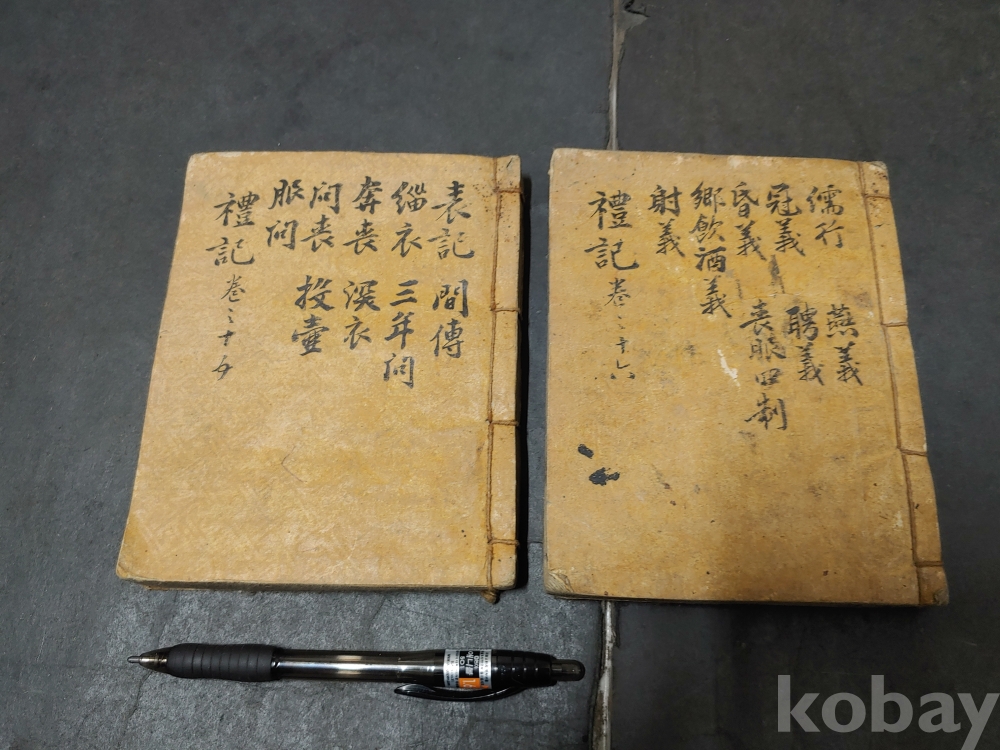 表記
緇衣
奔喪
問喪
服問
間傳
三年問
深衣
投壺
禮記 卷之十五
儒行
冠義
昏義
鄉飮酒義
射義
燕義
聘義
喪服四制
禮記 卷之十六
kobay